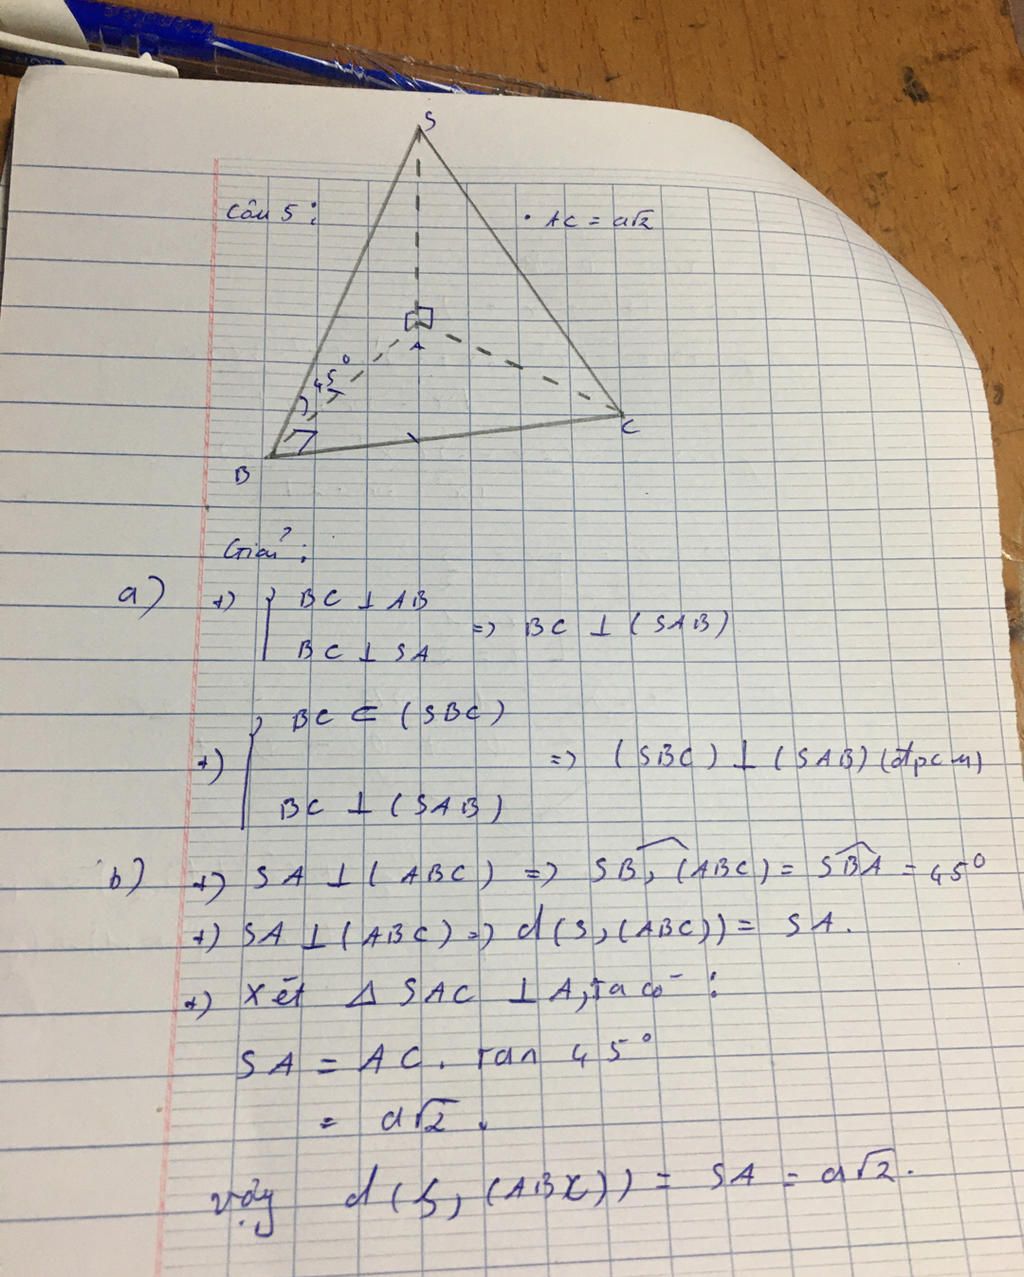 S
Câu 5:
• AC = a√2
A
45°
C
B
Giải:
a) +) { BC ⊥ AB
BC ⊥ SA => BC ⊥ (SAB)
+) { BC ⊂ (SBC)
BC ⊥ (SAB) => (SBC) ⊥ (SAB) (đpcm)
b) +) SA ⊥ (ABC) => SB, (ABC) = SBA = 45°
+) SA ⊥ (ABC) => d(S, (ABC)) = SA.
+) Xét Δ SAC ⊥ A, ta có:
SA = AC. tan 45°
= a√2.
Vậy d(S, (ABC)) = SA = a√2.